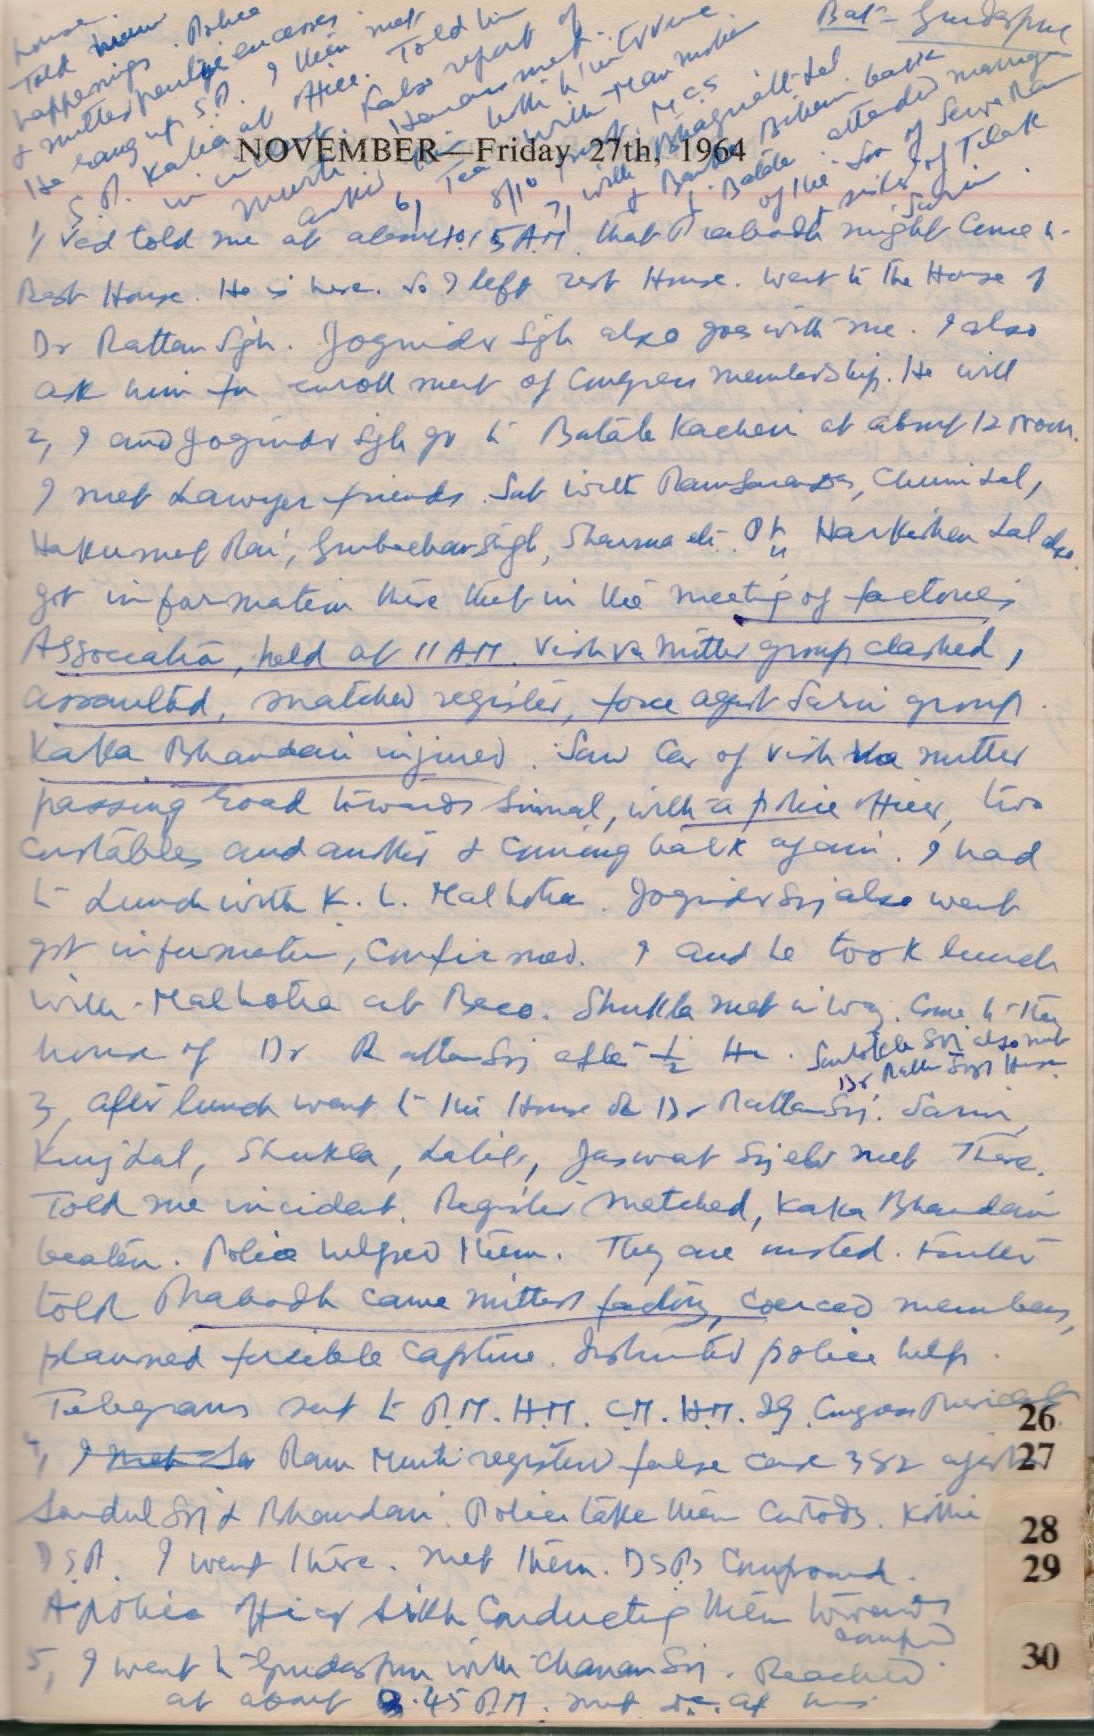 Bat - Gurdaspur
NOVEMBER—Friday 27th, 1964
1, Ved told me at about 10.15 A.M. that Prabodh might come to
Rest House. He is here. So I left rest House. Went to the House of
Dr Rattan Sgh. Joginder Sgh also goes with me. I also
ask him for enrollment of Congress membership. He will
2, I and Joginder Sgh go to Batala Kacheri at about 12 noon.
I met Lawyer friends. Sat with Ram Saran Das, Chuni Lal,
Hakumat Rai, Gurbachan Singh, Sharma etc. Harkishan Lal also.
got information there that in the meeting of factories
Association, held at 11 AM. Vishva Mitter group clashed,
assaulted, snatched register, force agst Sarin group.
Kaka Bhandari injured. Saw Car of Vishva Mitter
passing road towards Simal, with a police officer, two
constables and another & coming back again. I had
to Lunch with K. L. Malhotra. Joginder Sgj also went
got information, confirmed. I and he took lunch
with Malhotra at Beco. Shukla met in way. Come to the
house of Dr Rattan Sgj after ½ Hr. Santokh Sgj also met
Dr Rattan Sgj House.
3, after lunch went to the House of Dr Rattan Sgj. Sarin,
Kunj Lal, Shukla, Jaswat Sgj etc met There.
Told me incident. Register snatched, Kaka Bhandari
beaten. Police helped them. They are Further
told Prabodh came Mitter's factory, coerced members,
planned forcible capture. Instructed police help.
Telegrams sent to P.M. H.M. C.M. H.M. IG. Congress President
4, I Ram Murti registered false case 382 against
Sgj & Bhandari. Police take them Custody.
D.S.P. I went there. met them. DSPs Compound.
A police officer Sikh Conducting them towards
5, I went to Gurdaspur with Chanan Sgj. Reached
at about 3.45 P.M. met at his
house.
Told him
happenings. Police
& Mitter
He rang up S.P. I then met
S.P. Kalia at office. Told him
False report of
Murti. Harassment.
asked him to intervene
6, Tea with Man Mohan
8/10 M.C.s
7, with Bhagwati Lal
& Banke Bihari. back
to Batala. attended marriage
of the Son of Sewa Ram
sister of Tilak
Sarin.
26
27
28
29
30